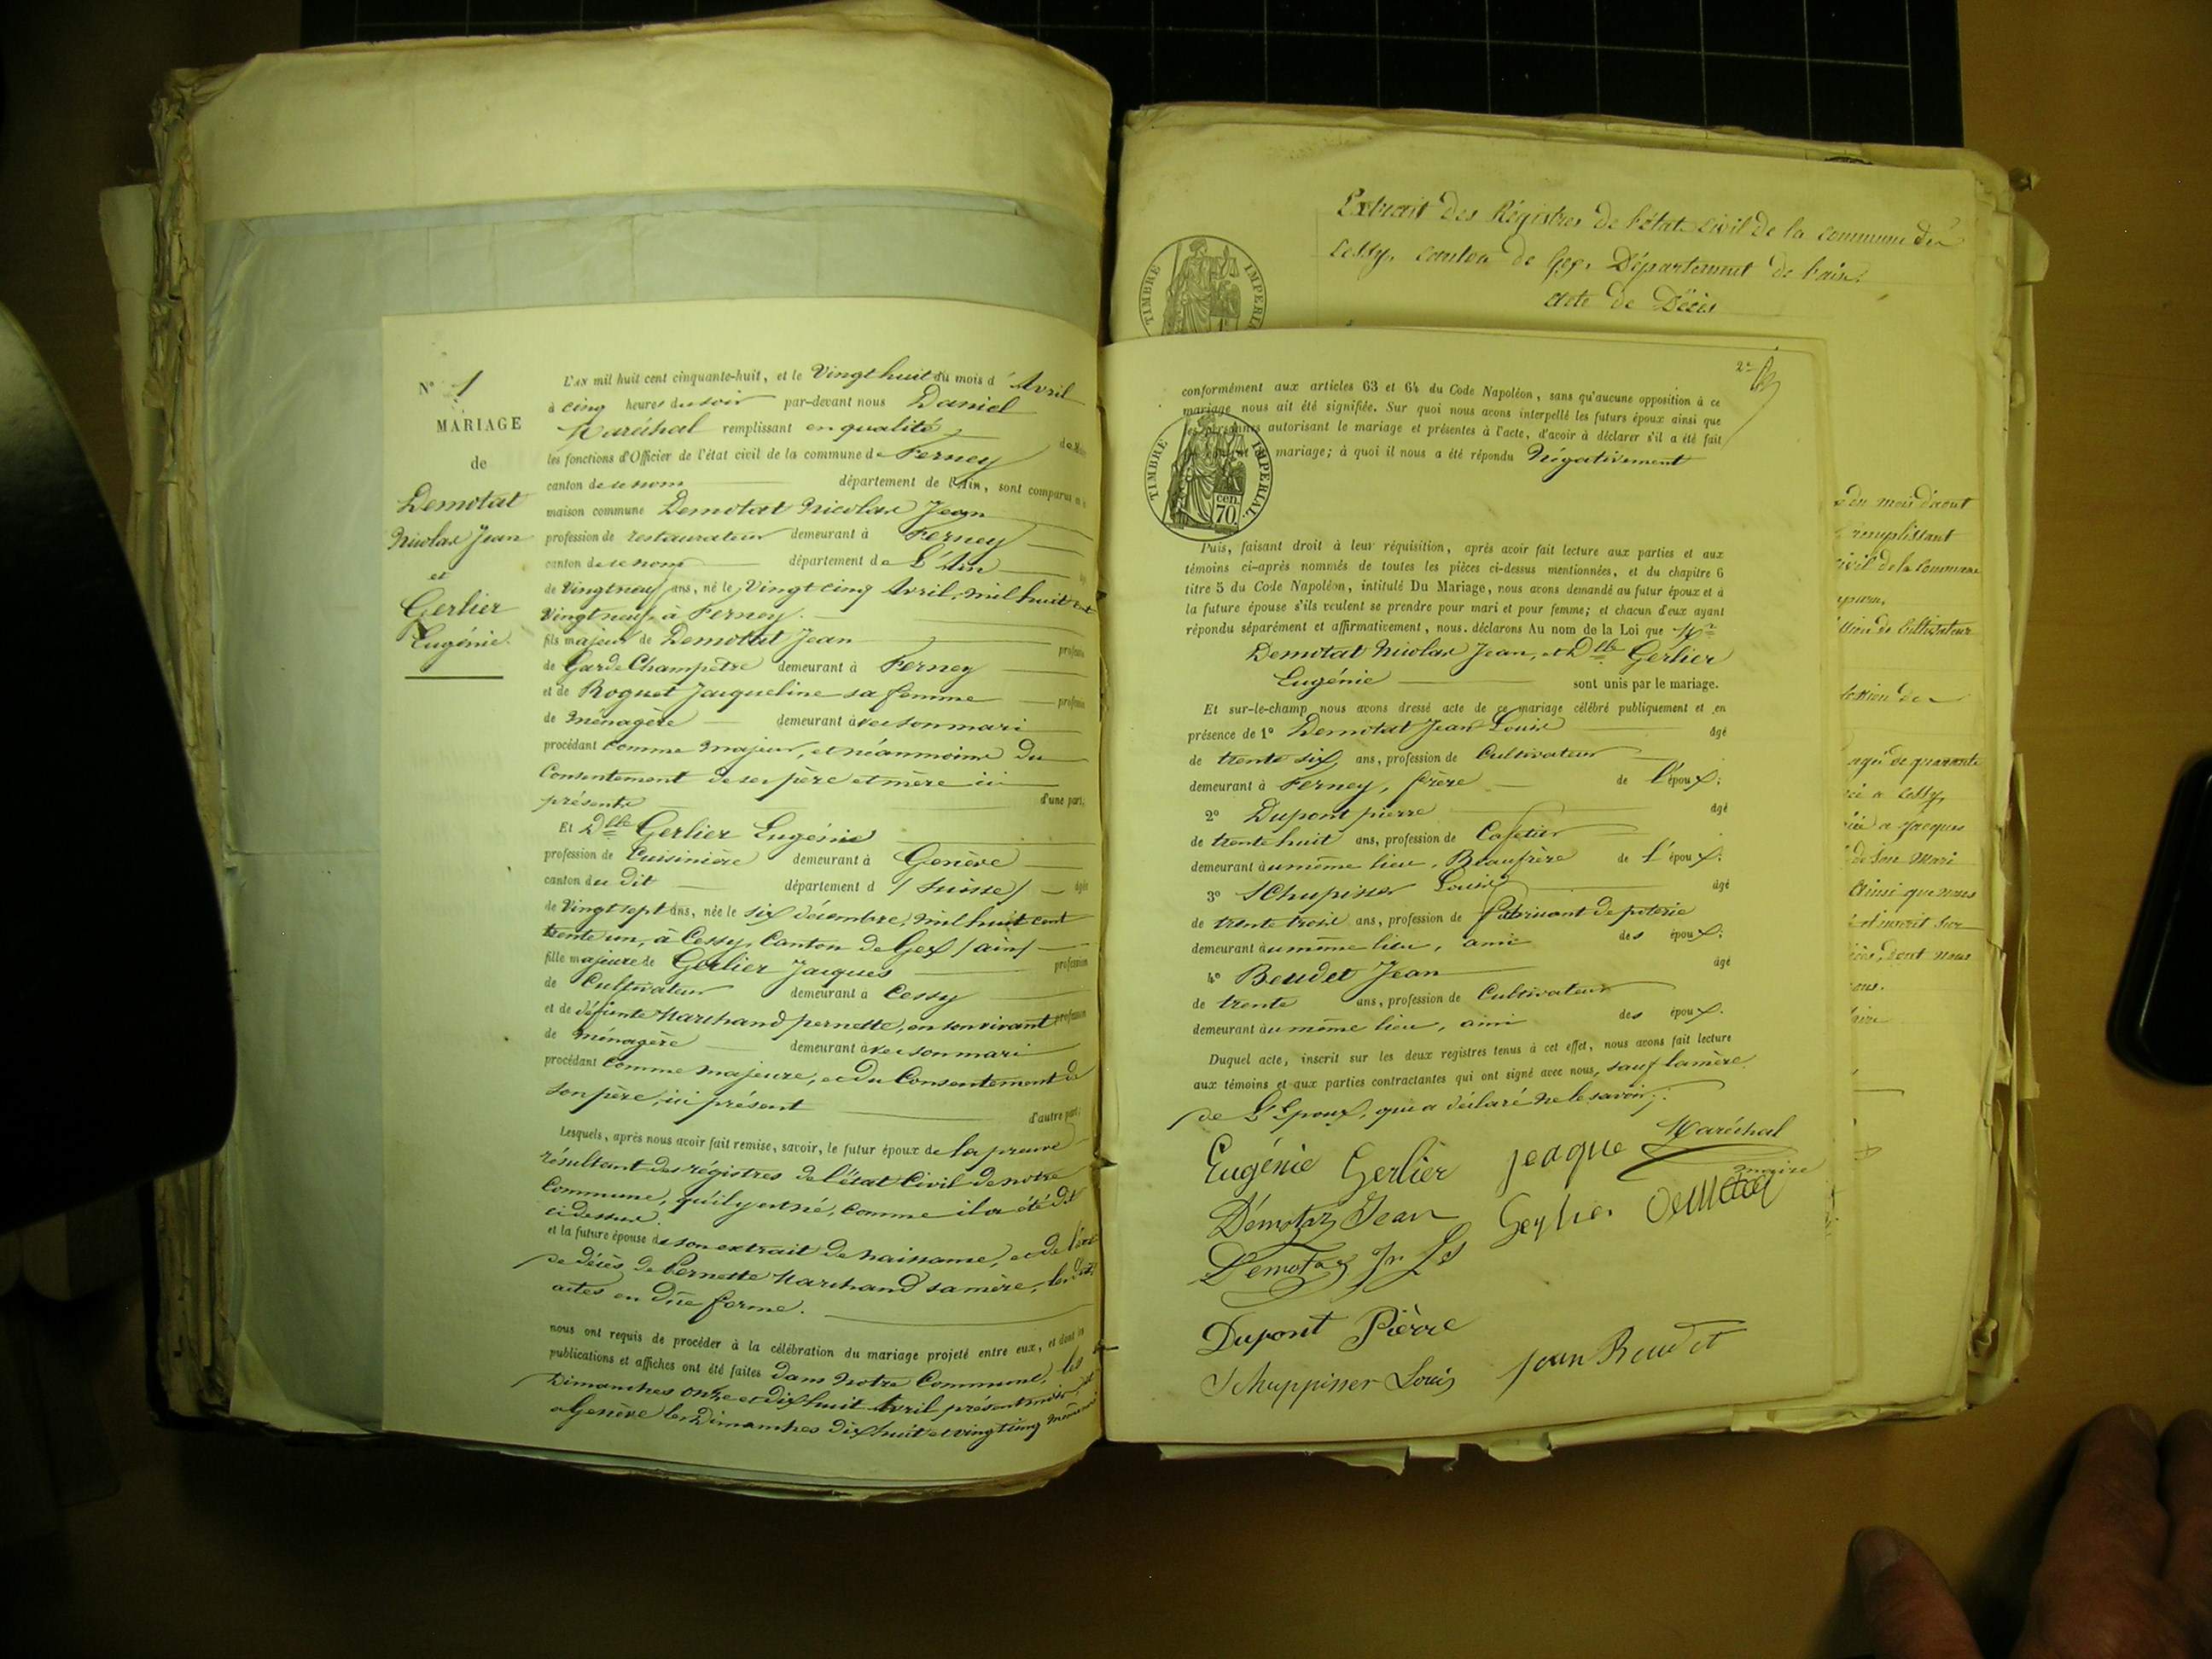 N° 1
MARIAGE
de
Demotat
Nicolas Jean
et
Gerlier
Eugénie.
L'AN mil huit cent cinquante-huit, et le Vingt huit du mois d'Avril
à cinq heures du soir par-devant nous Daniel
Maréchal remplissant en qualité de Maire
les fonctions d'Officier de l'état civil de la commune de Ferney
canton de ce nom département de l'Ain, sont comparus en la
maison commune Demotat Nicolas Jean
profession de restaurateur demeurant à Ferney
canton de ce nom département de L'Ain
de Vingt neuf ans, né le Vingt cinq Avril, mil huit cent
Vingt neuf, à Ferney.
fils majeur de Demotat Jean profession
de Garde Champêtre demeurant à Ferney
et de Roguet Jacqueline sa femme profession
de ménagère demeurant avec son mari
procédant comme majeur, et néanmoins du
Consentement de ses père et mère ici
présents d'une part;
Et Dlle Gerlier Eugénie
profession de Cuisinière demeurant à Genève
canton du dit département d (Suisse) âgée
de Vingt sept ans, née le six décembre, mil huit cent
trente un, à Cessy, Canton de Gex (ain)
fille majeure de Gerlier Jacques profession
de Cultivateur demeurant à Cessy
et de défunte Marchand pernette, en son vivant profession
de ménagère demeurant avec son mari
procédant Comme majeure, et du Consentement de
son père, ici présent d'autre part;
Lesquels, après nous avoir fait remise, savoir, le futur époux de la preuve
résultant des régistres de l'état Civil de notre
Commune, qu'il y est né, Comme il a été dit
ci dessus.
et la future épouse de son extrait de naissance, et de l'acte
de décès de Pernette Marchand sa mère, les dits
actes en dûe forme.
nous ont requis de procéder à la célébration du mariage projeté entre eux, et dont les
publications et affiches ont été faites dans notre Commune, les
Dimanches onze et dix huit Avril présent mois, et
à Genève les Dimanches dix huit et vingt cinq même mois
2e
conformément aux articles 63 et 64 du Code Napoléon, sans qu'aucune opposition à ce
mariage nous ait été signifiée. Sur quoi nous avons interpellé les futurs époux ainsi que
les personnes autorisant le mariage et présentes à l'acte, d'avoir à déclarer s'il a été fait
mariage; à quoi il nous a été répondu Négativement
TIMBRE IMPERIAL
cen.
70.
Puis, faisant droit à leur réquisition, après avoir fait lecture aux parties et aux
témoins ci-après nommés de toutes les pièces ci-dessus mentionnées, et du chapitre 6
titre 5 du Code Napoléon, intitulé Du Mariage, nous avons demandé au futur époux et à
la future épouse s'ils veulent se prendre pour mari et pour femme; et chacun d'eux ayant
répondu séparément et affirmativement, nous. déclarons Au nom de la Loi que Mr
Demotat Nicolas Jean, et Dlle Gerlier
Eugénie sont unis par le mariage.
Et sur-le-champ nous avons dressé acte de ce mariage célébré publiquement et en
présence de 1° Demotat Jean Louis âgé
de trente six, ans, profession de Cultivateur
demeurant à Ferney, frère de l'époux;
2° Dupont pierre âgé
de trente huit ans, profession de Cafetier
demeurant au même lieu, Beaufrère de l'époux;
3° Schupisser Louis âgé
de trente trois ans, profession de fabricant de poterie
demeurant au même lieu, ami des époux;
4° Beudet Jean âgé
de trente ans, profession de Cultivateur
demeurant au même lieu, ami des époux.
Duquel acte, inscrit sur les deux registres tenus à cet effet, nous avons fait lecture
aux témoins et aux parties contractantes qui ont signé avec nous, sauf la mère
de L'Epoux, qui a déclaré ne le savoir.
Eugénie Gerlier jeaque Maréchal
maire
Démotaz Jean Gerlier
Demotaz Jn Ls
Dupont Pièrre
Schuppisser Louis jean Beudet
Extrait des Régistres de l'état civil de la commune de
Cessy, canton de Gex, Département de l'ain.
acte de Décès
TIMBRE IMPERIAL
du mois d'aout
remplissant
civil de la Commune
de Cultivateur
agé de quarante
à Cessy,
a Jacques
de son Mari
Ainsi que nous
et inscrit sur
dont nous